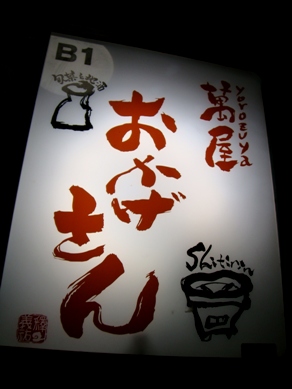 B1
旬菜と地酒
萬屋
yorozuya
おかげ
さん
Shitirin